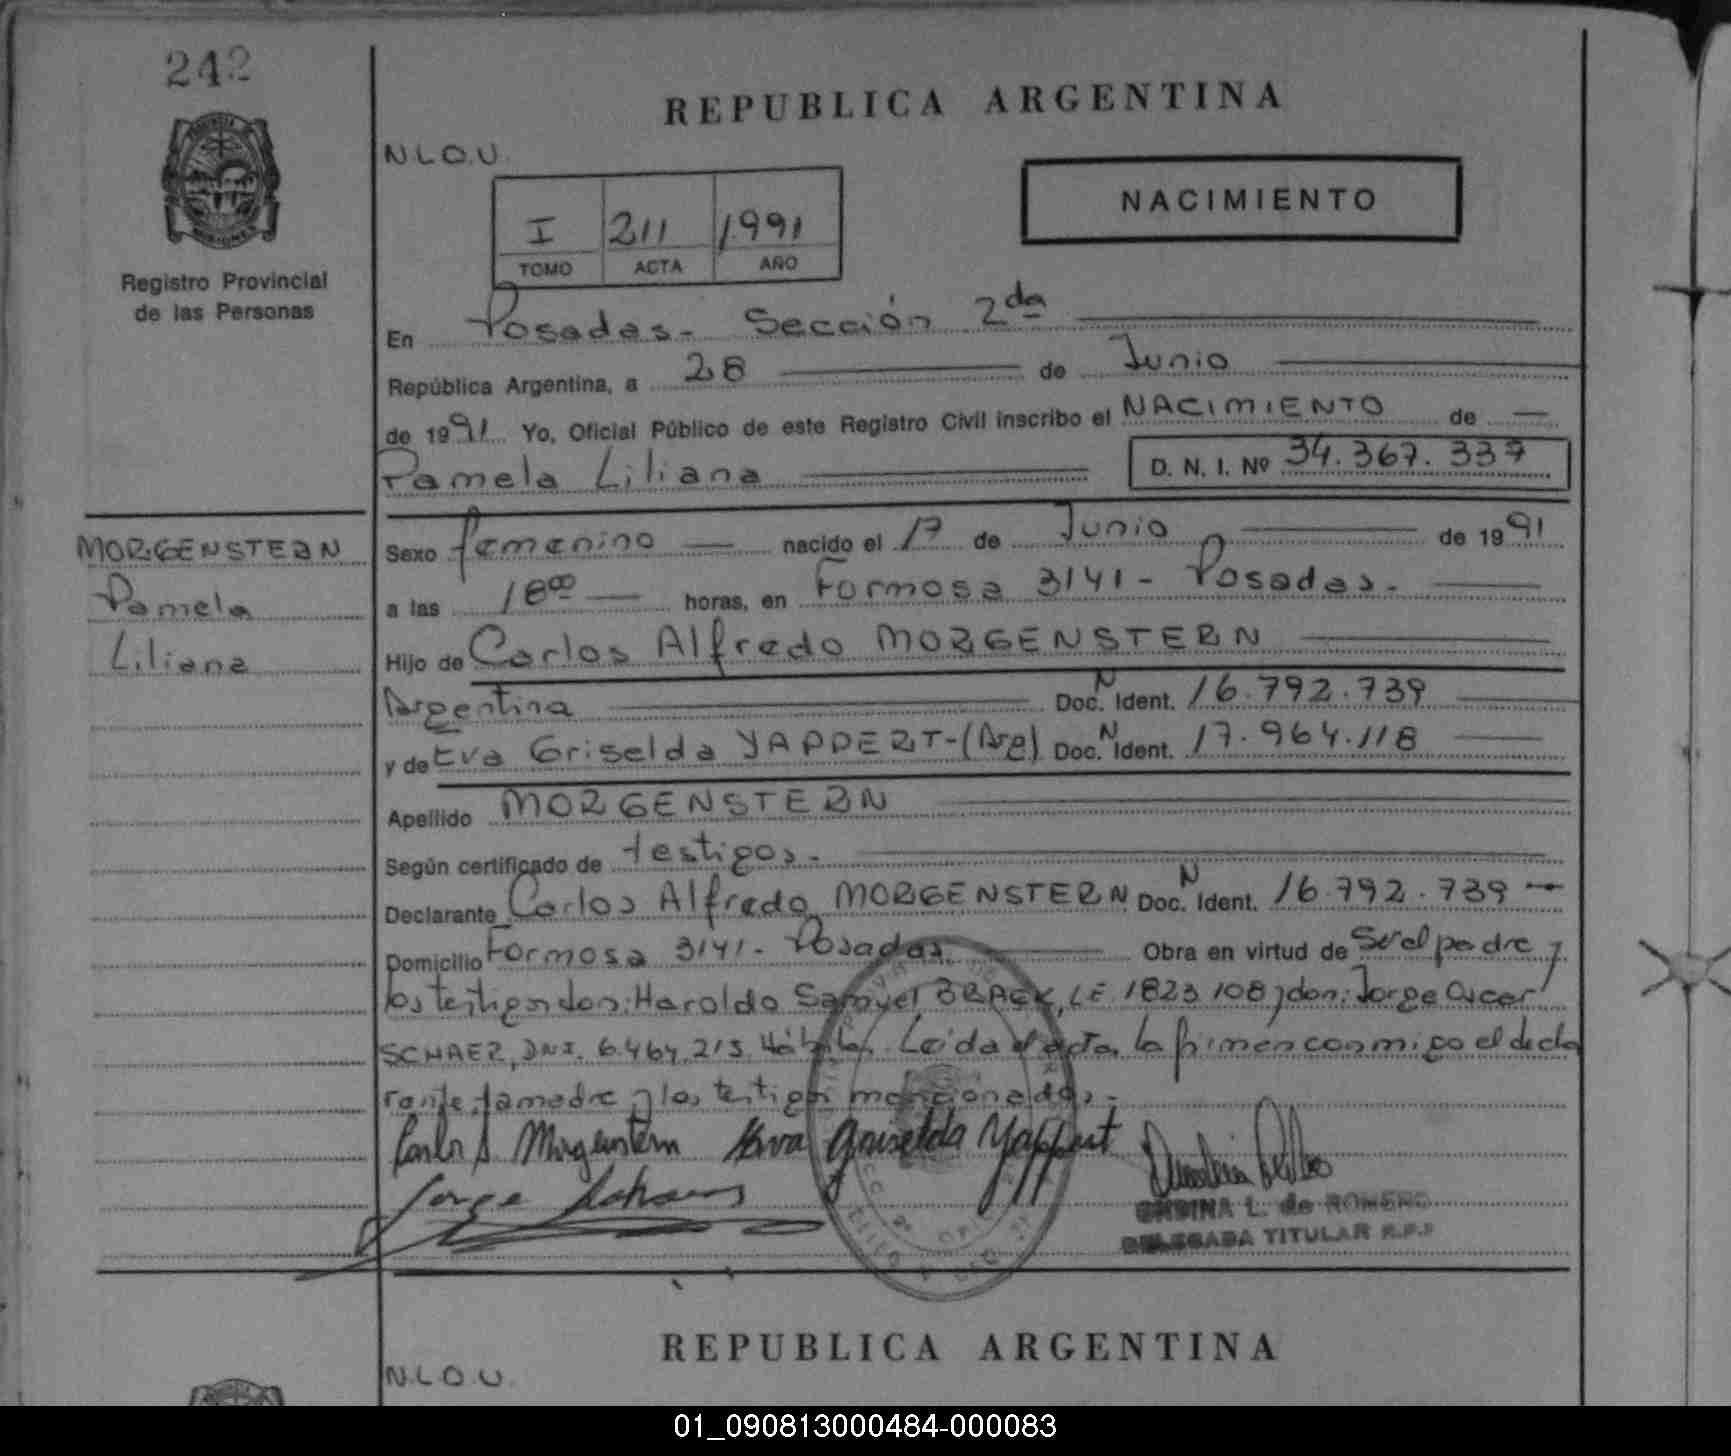 242
REPUBLICA ARGENTINA
N.L.O.U.
NACIMIENTO
I 211 1991
TOMO ACTA AÑO
Registro Provincial
de las Personas
En Posadas - Sección 2da
República Argentina, a 28 de Junio
de 1991 Yo, Oficial Público de este Registro Civil inscribo el NACIMIENTO de
Pamela Liliana D. N. I. Nº 34.367.337
MORGENSTERN
Pamela
Liliana
Sexo femenino nacido el 17 de Junio de 1991
a las 18 00 horas, en Formosa 3141 - Posadas.
Hijo de Carlos Alfredo MORGENSTERN
Argentina Doc. N Ident. 16.792.739
y de Eva Griselda YAPPERT - (Arg) Doc. N Ident. 17.964.118
Apellido MORGENSTERN
Según certificado de testigos.
Declarante Carlos Alfredo MORGENSTERN Doc. N Ident. 16.792.739
Domicilio Formosa 3141 - Posadas. Obra en virtud de Ser el padre y
los testigos don: Haroldo Samuel BRACK, LE. 1823 108 y don: Jorge Oscar
SCHAER, DNI. 6.464.213. Hábiles. Leida el acta, la firman conmigo el decla
rante, la madre y los testigos mencionados.-
Carlos A Morgenstern Eva Griselda Yappert
Jorge
L. de ROMERO
DELEGADA TITULAR R.P.P
REPUBLICA ARGENTINA
N.L.O.U.
01_090813000484-000083